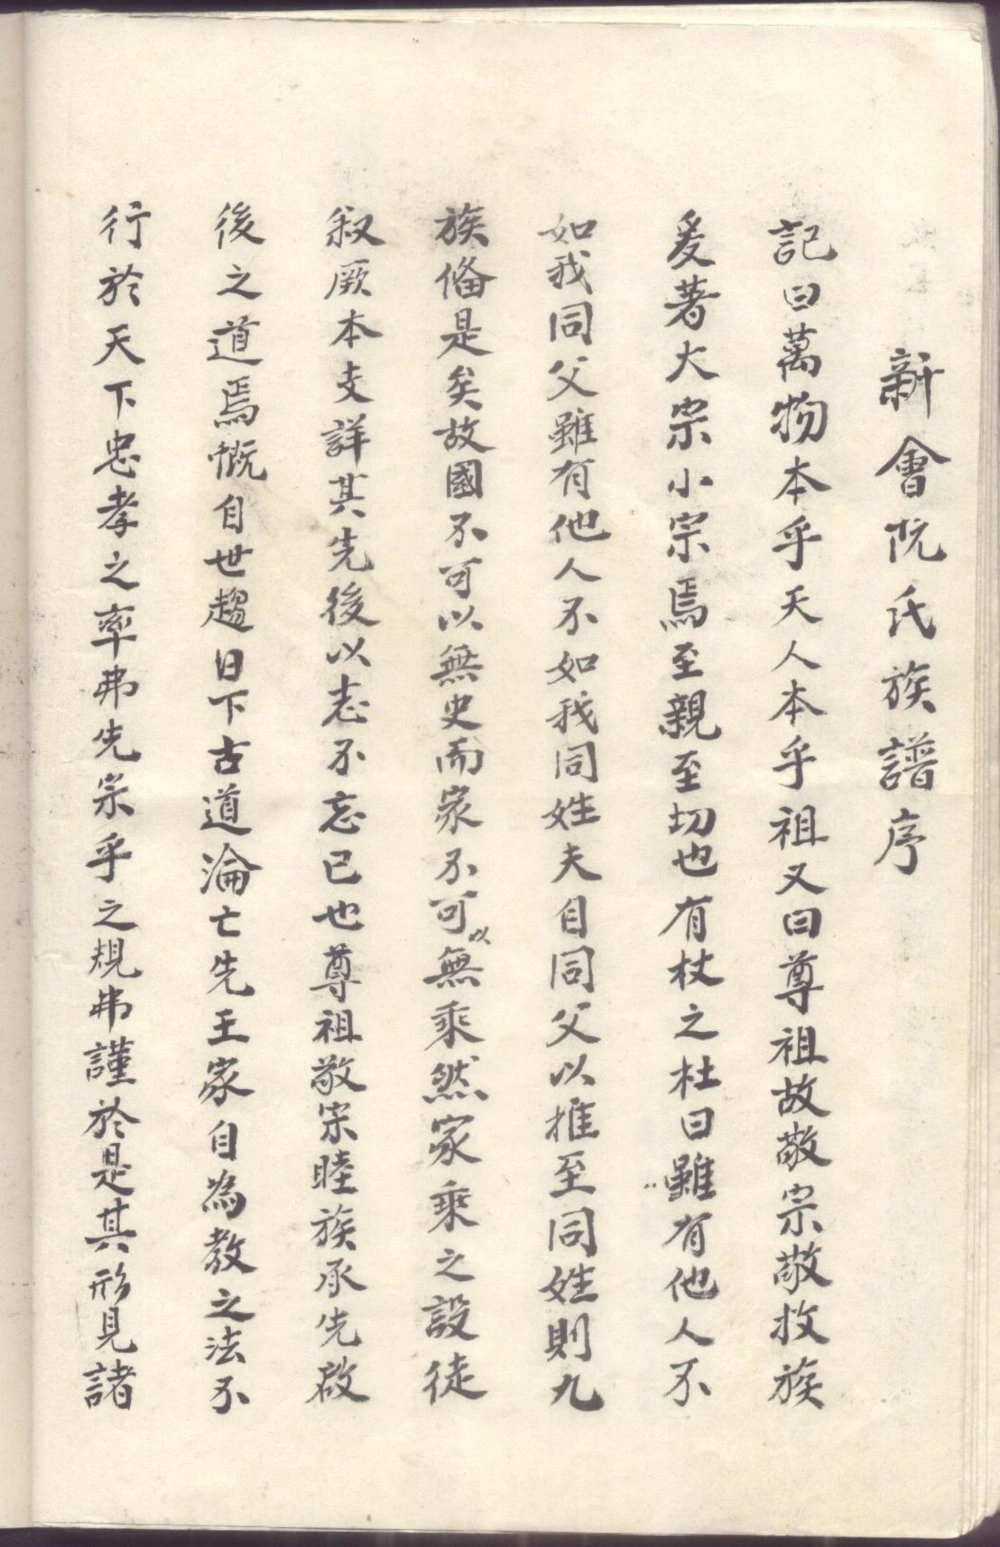 新會阮氏族譜序
記曰萬物本乎天人本乎祖又曰尊祖故敬宗敬故族
爰著大宗小宗焉至親至切也有杕之杜曰雖有他人不
如我同父雖有他人不如我同姓夫自同父以推至同姓則九
族俻是矣故國不可以無史而家不可以無乘然家乘之設徒
叙厥本支詳其先後以志不忘已也尊祖敬宗睦族承先啟
後之道焉慨自世趨日下古道淪亡先王家自為教之法不
行於天下忠孝之率弗先宗乎之規弗謹於是其形見諸